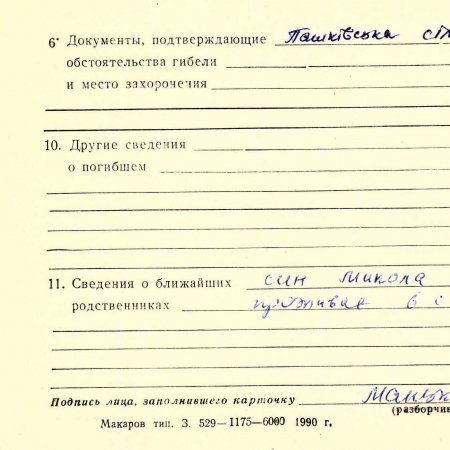 6* Документы, подтверждающие Пашківська
обстоятельства гибели
и место захоронечия
10. Другие сведения
о погибшем
11. Сведения о ближайших син Микола
родственниках проживає в с
Подпись лица, заполнившего карточку
(разборчив
Макаров тип. З. 529—1175—6000 1990 г.